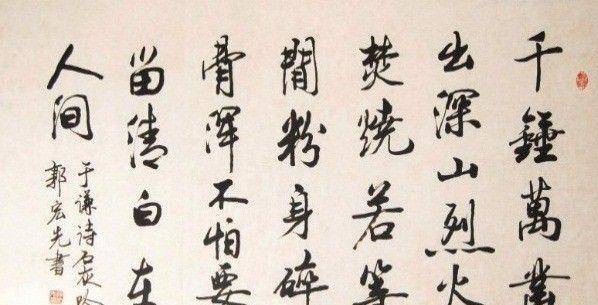 千錘萬
出深山烈火
焚燒若等
閒粉身碎
骨渾不怕要
留清白在
人间
于谦诗石灰吟
郭宏先書